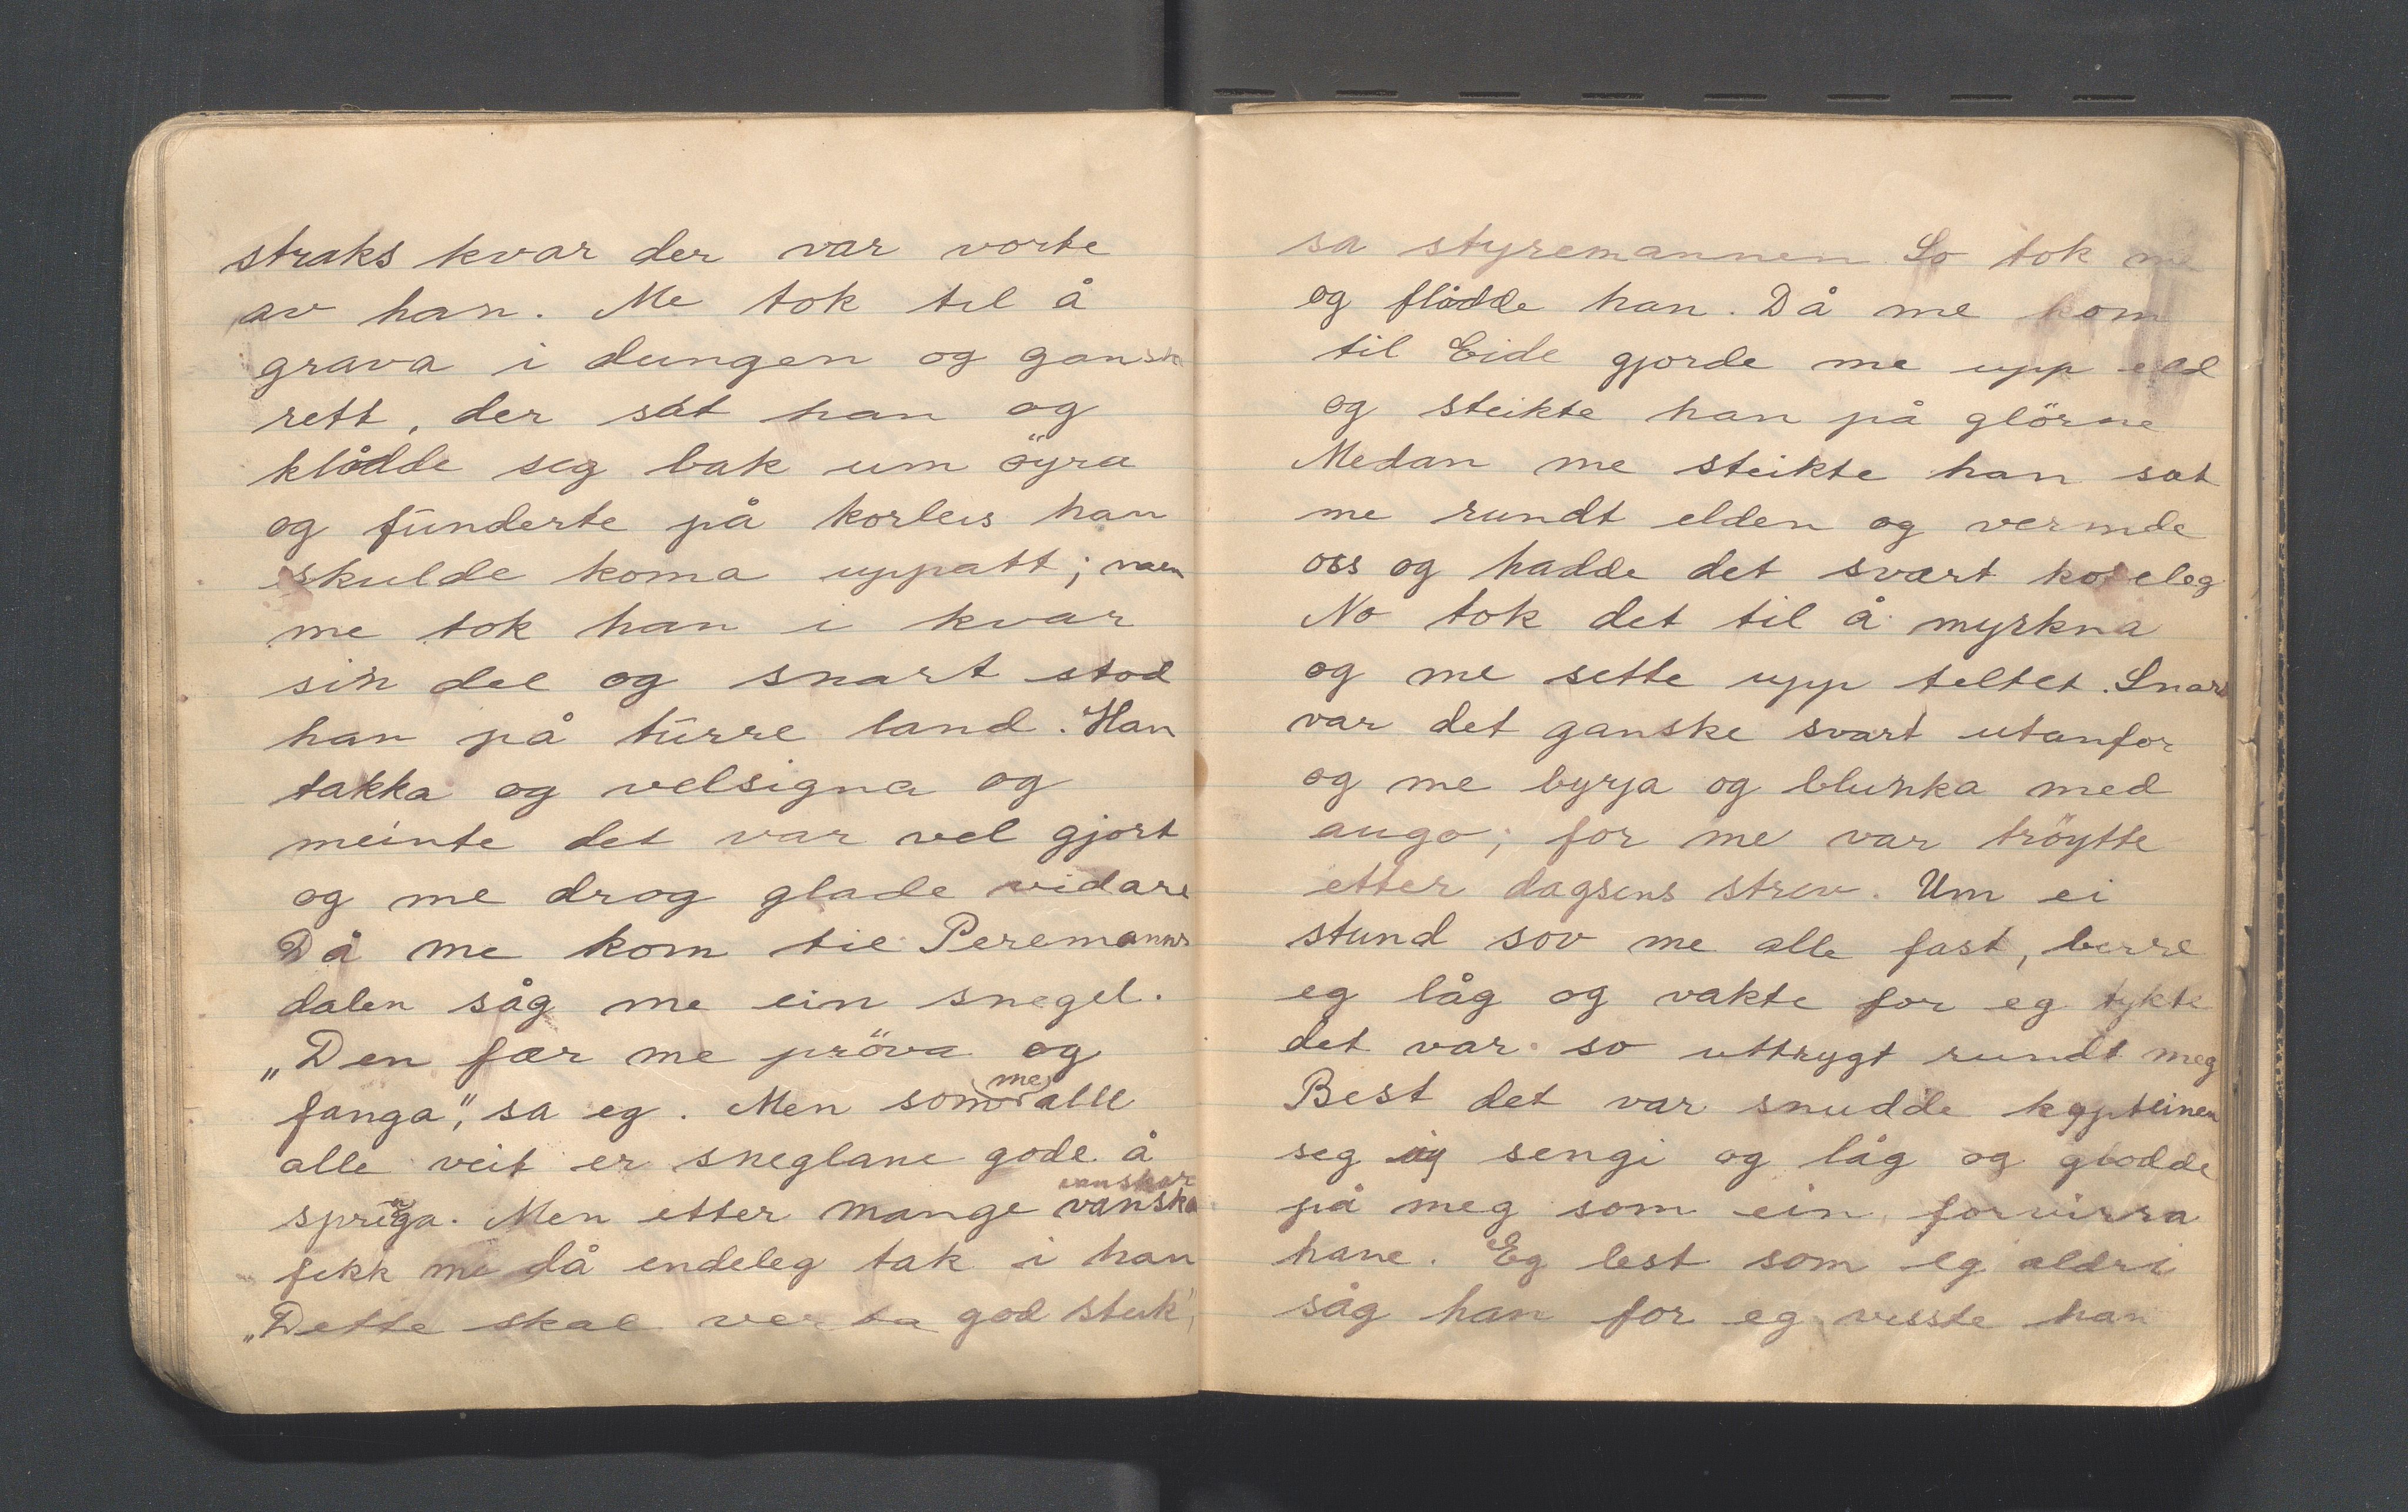 straks kvar der var vorte
av han. Me tok til å
grava i dungen og gansk
rett, der sat han og
klådde seg bak um öyra
og funderte på korleis han
skulde koma uppatt; men
me tok han i kvar
sin del og snart stod
han på turre land. Han
takka og velsigna og
meinte det var vel gjort
og me drog glade vidare
Då me kom til Peremanns
dalen såg me ein snegel.
„Den fær me pröva og
fanga", sa eg. Men som me alle
alle veit er sneglane gode å
springa. Men etter mange vanskar vanska
fekk me då endeleg tak i han
„Dette skal verta god steik",
sa styremannen So tok me
og flådde han. Då me kom
til Eide gjorde me upp eld
og steikte han på glörne
Medan me steikte han sat
me rundt elden og vermde
oss og hadde det svært koseleg
No tok det til å myrkna
og me sette upp teltet. Snart
var det ganske svart utanfor
og me byrja og blunka med
augo; for me var tröytte
etter dagsens strev. Um ei
stund sov me alle fast, berre
eg låg og vakte for eg tykte
det var so uttrygt rundt meg
Best det var snudde kapteinen
seg i sengi og låg og glodde
på meg som ein forvirra
hane. Eg lest som eg aldri
såg han for eg visste han